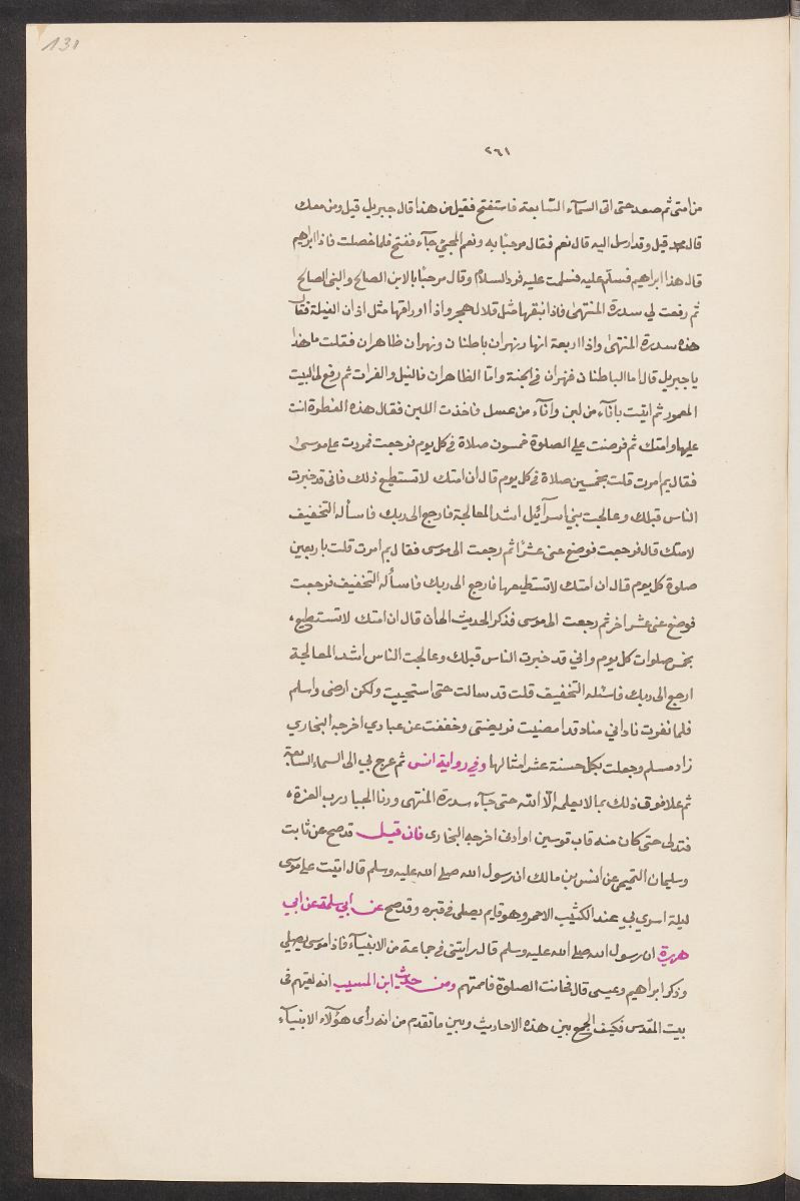 131
٢٦١
من امتى ثم صعد حتى اتى السمآء السّابعة فاستفتح فقيل من هذا قال جبريل قيل ومن معك
قال محمد قيل وقد ارسل اليه قال نعم فقال مرحبًا به ونعم المجئ جآء ففتح فلما خصلت فاذا ابراهيم
قال هذا ابراهيم فسلّم عليه فسلمت عليه فرد السلام وقال مرحبًا بالابن الصالح والنبى الصالح
ثم رفعت لي سدرة المنتهىٰ فاذا نبقها مثل قلال هجر واذا اوراقها مثل اذان الفيلة فقال
هذه سدرة المنتهىٰ واذا اربعة انهار نهران باطنان ونهران ظاهران فقلت ما هذا
يا جبريل قال اما الباطنان فنهران فى الجنة وامّا الظاهران فالنيل والفرات ثم رفع لى البيت
المعمور ثم اتيت بانآء من لبن وانآء من عسل فاخذت اللبن فقال هذه الفطرة انت
عليها وامتك ثم فرضت علي الصلوة خمسون صلاة فى كل يوم فرجعت فمررت على موسىٰ
فقال بم امرت قلت بخمسين صلاة فى كل يوم قال ان امتك لا تستطيع ذلك فانى قد خبرت
الناس قبلك وعالجت بني اسرآئيل اشد المعالجة فارجع الى ربك فاسأله التخفيف
لامتك قال فرجعت فوضع عنى عشرًا ثم رجعت الى موسى فقال بم امرت قلت باربعين
صلوة كل يوم قال ان امتك لا تستطيعها فارجع الى ربك فاسأله التخفيف فرجعت
فوضع عنى عشرا خر ثم رجعت الى موسى فذكر الحديث الى ان قال ان امتك لا تستطيع
بخمس صلوات كل يوم وانى قد خبرت الناس قبلك وعالجت الناس اشد المعالجة
ارجع الى ربك فاسئله التخفيف قلت قد سالت حتى استحييت ولكن ارضى واسلم
فلما نفرت نادانى مناد قد امضيت فريضتى وخففت عن عبادي اخرجه البخاري
زاد مسلم وجعلت بكل حسنة عشر امثالها وفي رواية انس ثم عرج بي الى السماء السابعة
ثم علا فوق ذلك بما لا يعلمه الّا الله حتى جآء سدرة المنتهى ودنا الجبار رب العزة
فتدلى حتى كان منه قاب قوسين او ادنى اخرجه البخارى فان قيل قد صح عن ثابت
وسليمان التيمى عن انس بن مالك ان رسول الله صلى الله عليه وسلم قال اتيت على موسى
ليلة اسري بي عند الكثيب الاحمر وهو قايم يصلى فى قبره وقد صح عن ابي سلمة عن ابي
هريرة ان رسول الله صلى الله عليه وسلم قال رايتنى فى جماعة من الانبيآء فاذا موسى يصلي
وذكر ابراهيم وعيسى قال فحانت الصلوة فاممتهم ومن حديث ابن المسيب انه لقيهم فى
بيت المقدس فكيف الجمع بين هذه الاحاديث وبين ما تقدم من انه رأى هؤلآء الانبيآء